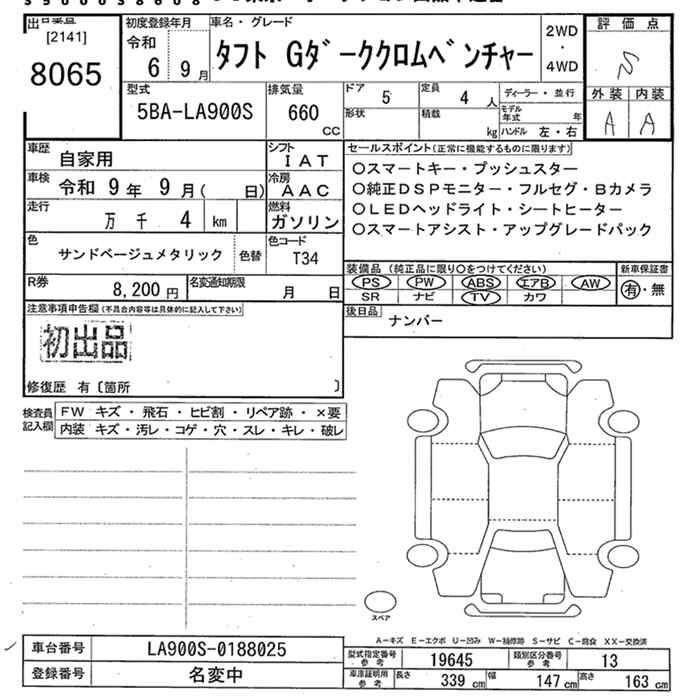 [2141]
8065
初度登録年月
令和
6 9月
車名・グレード
タフト Gダーククロムベンチャー
2WD
・
4WD
評価点
S
外装 内装
A A
型式
5BA-LA900S
排気量
660
CC
ドア
5
定員
4 人
ディーラー・並行
形状
積載
kg
モデル年式 年
ハンドル 左・右
車歴
自家用
シフト
IAT
車検
令和 9年 9月( 日)
冷房
AAC
走行
万 千 4 km
燃料
ガソリン
色
サンドベージュメタリック
色替
色コード
T34
R券
8,200円
名変通知期限
月 日
セールスポイント(正常に機能するものに限ります)
○スマートキー・プッシュスター
○純正DSPモニター・フルセグ・Bカメラ
○LEDヘッドライト・シートヒーター
○スマートアシスト・アップグレードパック
装備品 (純正品に限り○をつけてください)
新車保証書
PS PW ABS エアB AW
SR ナビ TV カワ
有・無
後日品
ナンバー
注意事項申告欄(不具合内容等は具体的に記入して下さい)
初出品
修復歴 有〔箇所 〕
検査員記入欄
FW キズ・飛石・ヒビ割・リペア跡・×要
内装 キズ・汚レ・コゲ・穴・スレ・キレ・破レ
スペア
A-キズ E-エクボ U-凹み W-補修跡 S-サビ C-腐食 XX-交換済
車台番号
LA900S-0188025
登録番号
名変中
型式指定番号 参考
19645
類別区分番号 参考
13
車庫証明用 参考
長さ 339 cm
幅 147 cm
高さ 163 cm